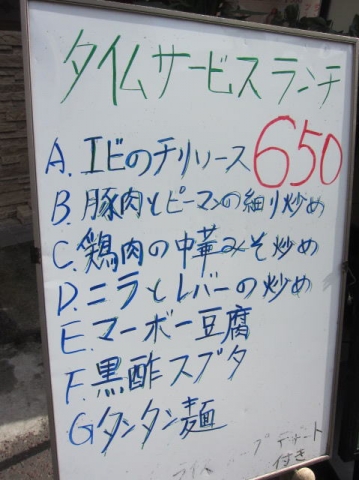 タイムサービスランチ
A. エビのチリソース 650
B. 豚肉とピーマンの細り炒め
C. 鶏肉の中華みそ炒め
D. ニラとレバーの炒め
E. マーボー豆腐
F. 黒酢スブタ
G タンタン麺
ライス スープ デザート
付き